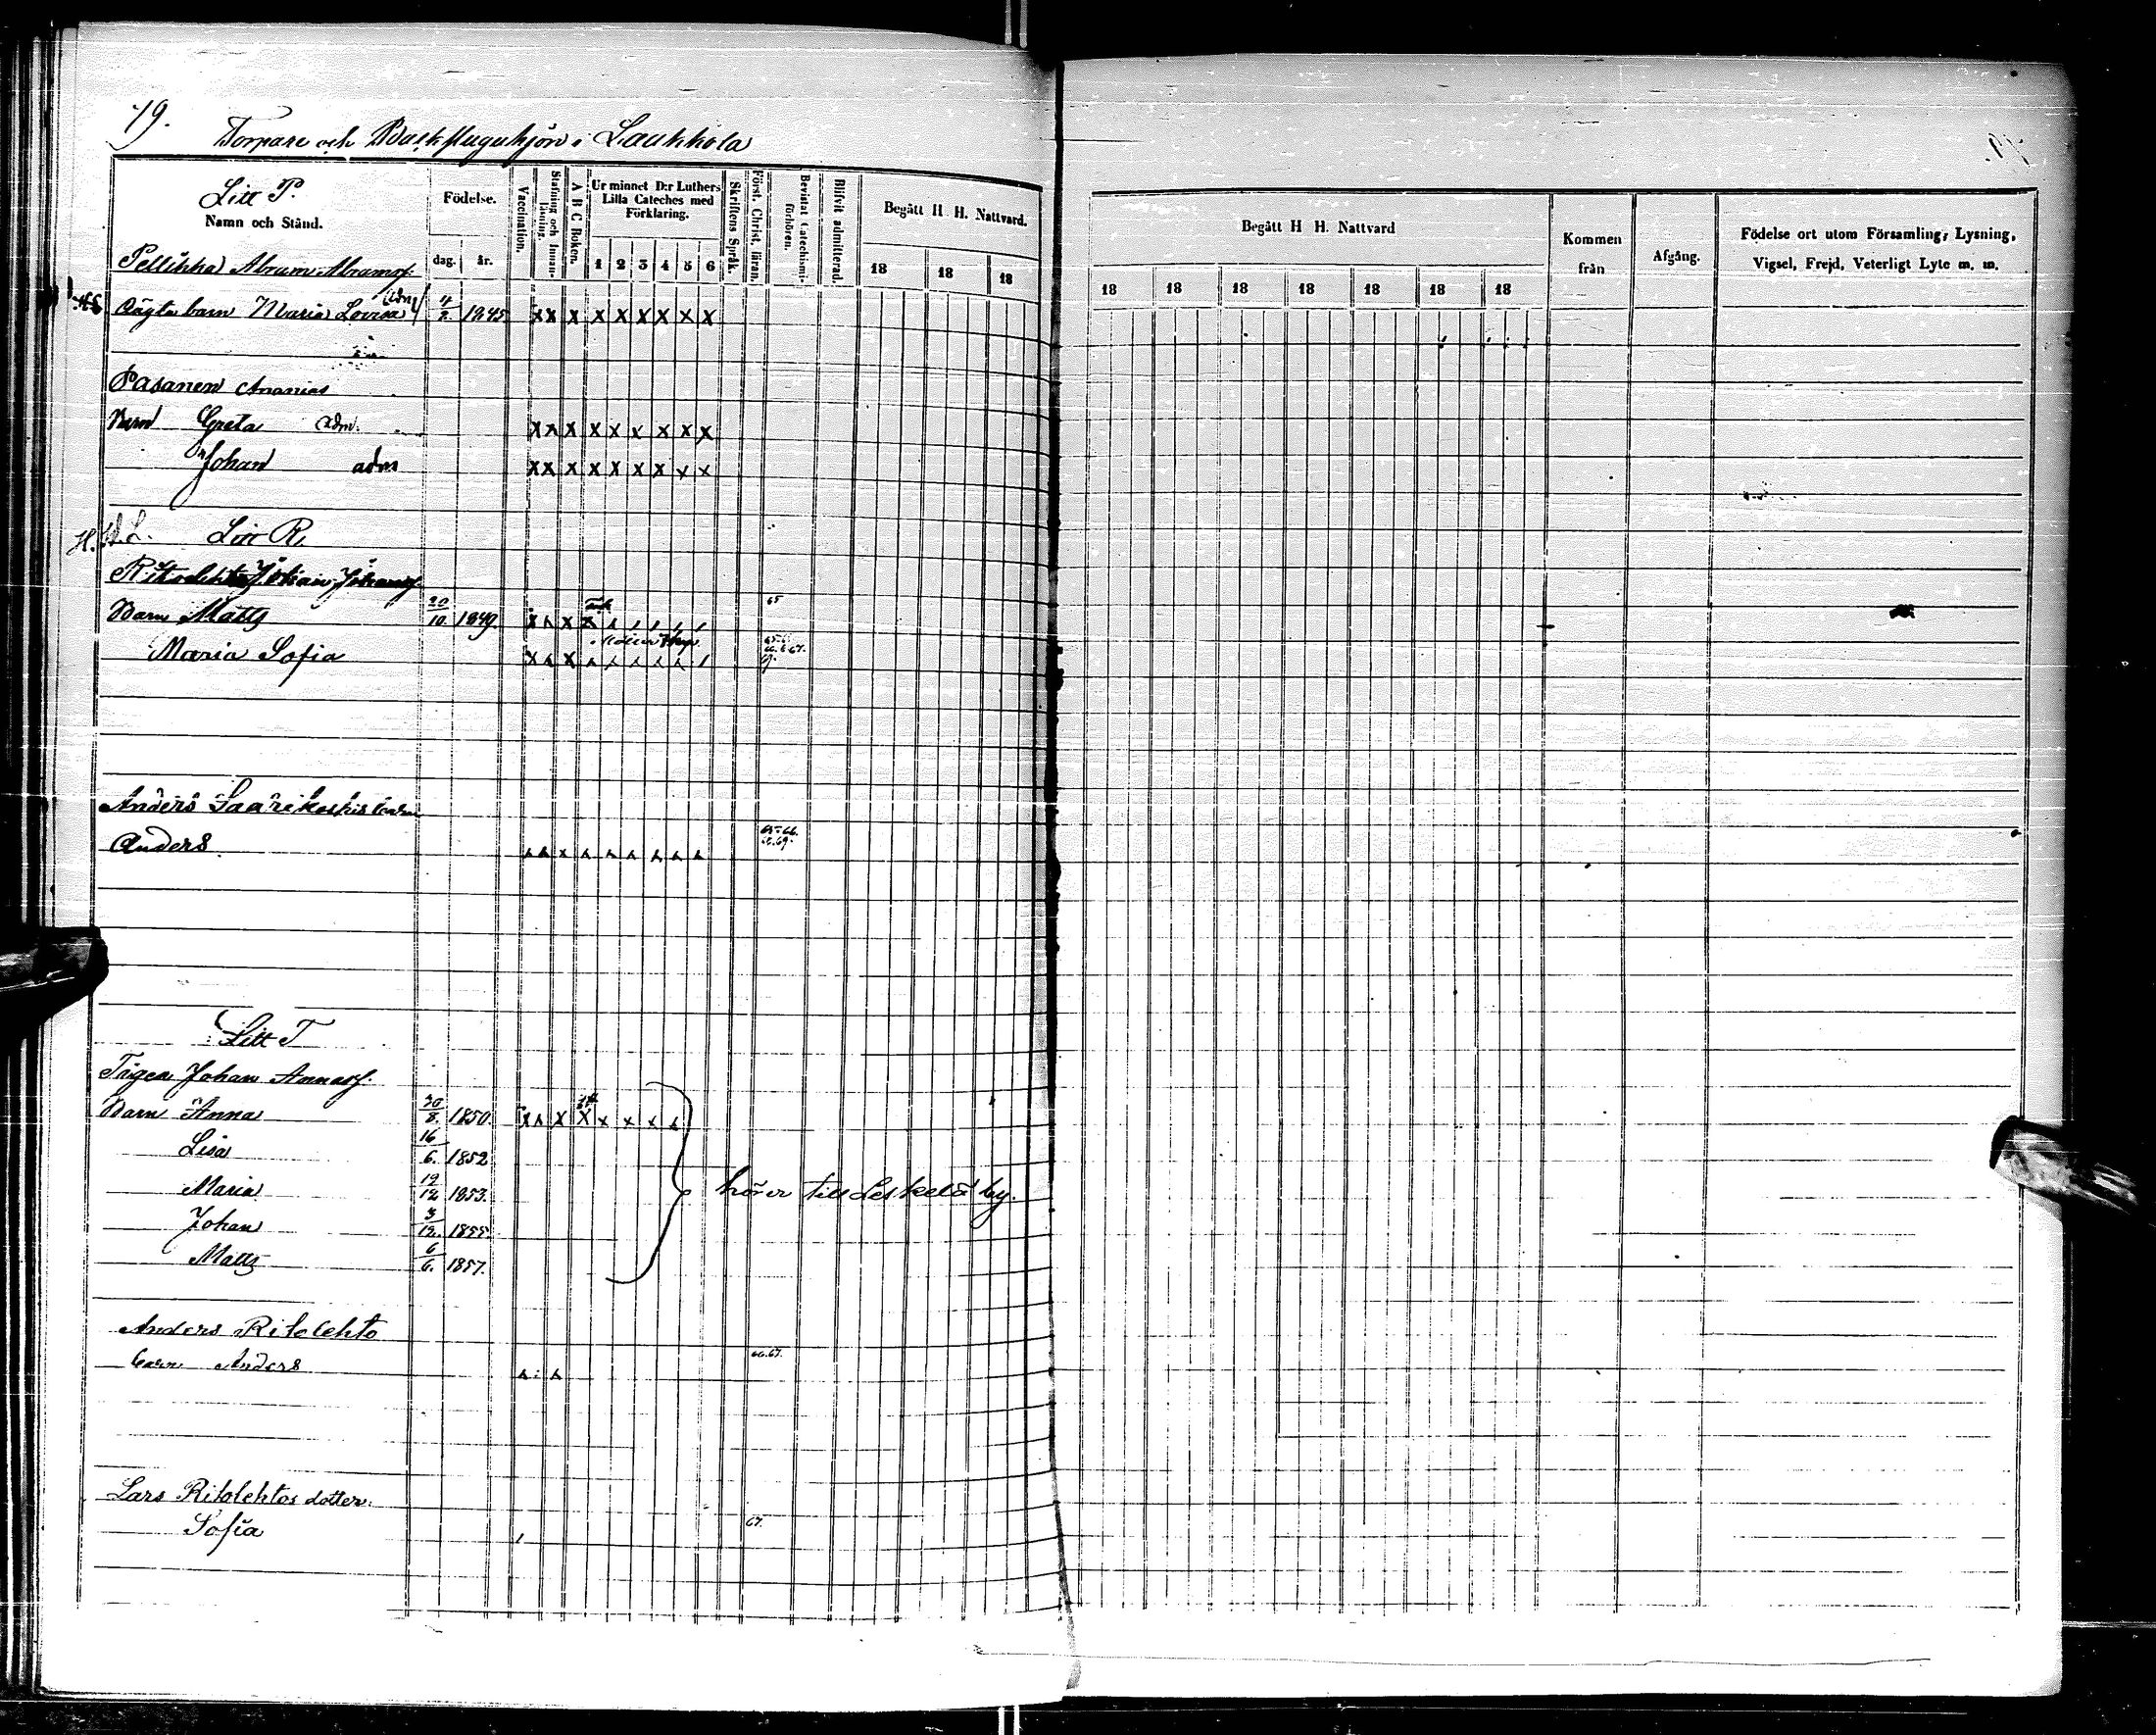 79.
Torpare och Backstuguhjon i Laukkola
Litt P.
Namn och Stånd.
Födelse.
dag. år.
Vaccination.
Stafning och Innanläsning.
A B C Boken.
Ur minnet D:r Luthers Lilla Cateches med Förklaring.
1 2 3 4 5 6
Skriftens Språk.
Först. Christ. läran.
Bevistat Catechismiförhören.
Blifvit admitterad.
Begått H H. Nattvard.
18 18 18
Begått H H. Nattvard
18 18 18 18 18 18 18
Kommen från
Afgång.
Födelse ort utom Församling, Lysning, Vigsel, Frejd, Veterligt Lyte m. m.
Pellikka Abram Abramss.
barn Maria Lovisa adm 4/2. 1845 x x x x x x x x x
Pasanen Ananias
Barn Greta adm. x x x x x x x x x
Johan adm x x x x x x x x x
Litt R.
Ritolehto Johan Johanss.
Barn Matts 20/10. 1849. 65
Maria Sofia
Anders Saarikoskis barn
Anders 65-66.
Litt T
Johan
Barn Anna 30/8. 1850.
Lisa 16/6. 1852
Maria 19/12 1853.
hörer till Leskelä by.
Johan 3/12. 1855.
Matts 6/6. 1857.
Anders Ritolehto
barn Anders 66.67.
Lars Ritolehtos dotter.
Sofia 67.